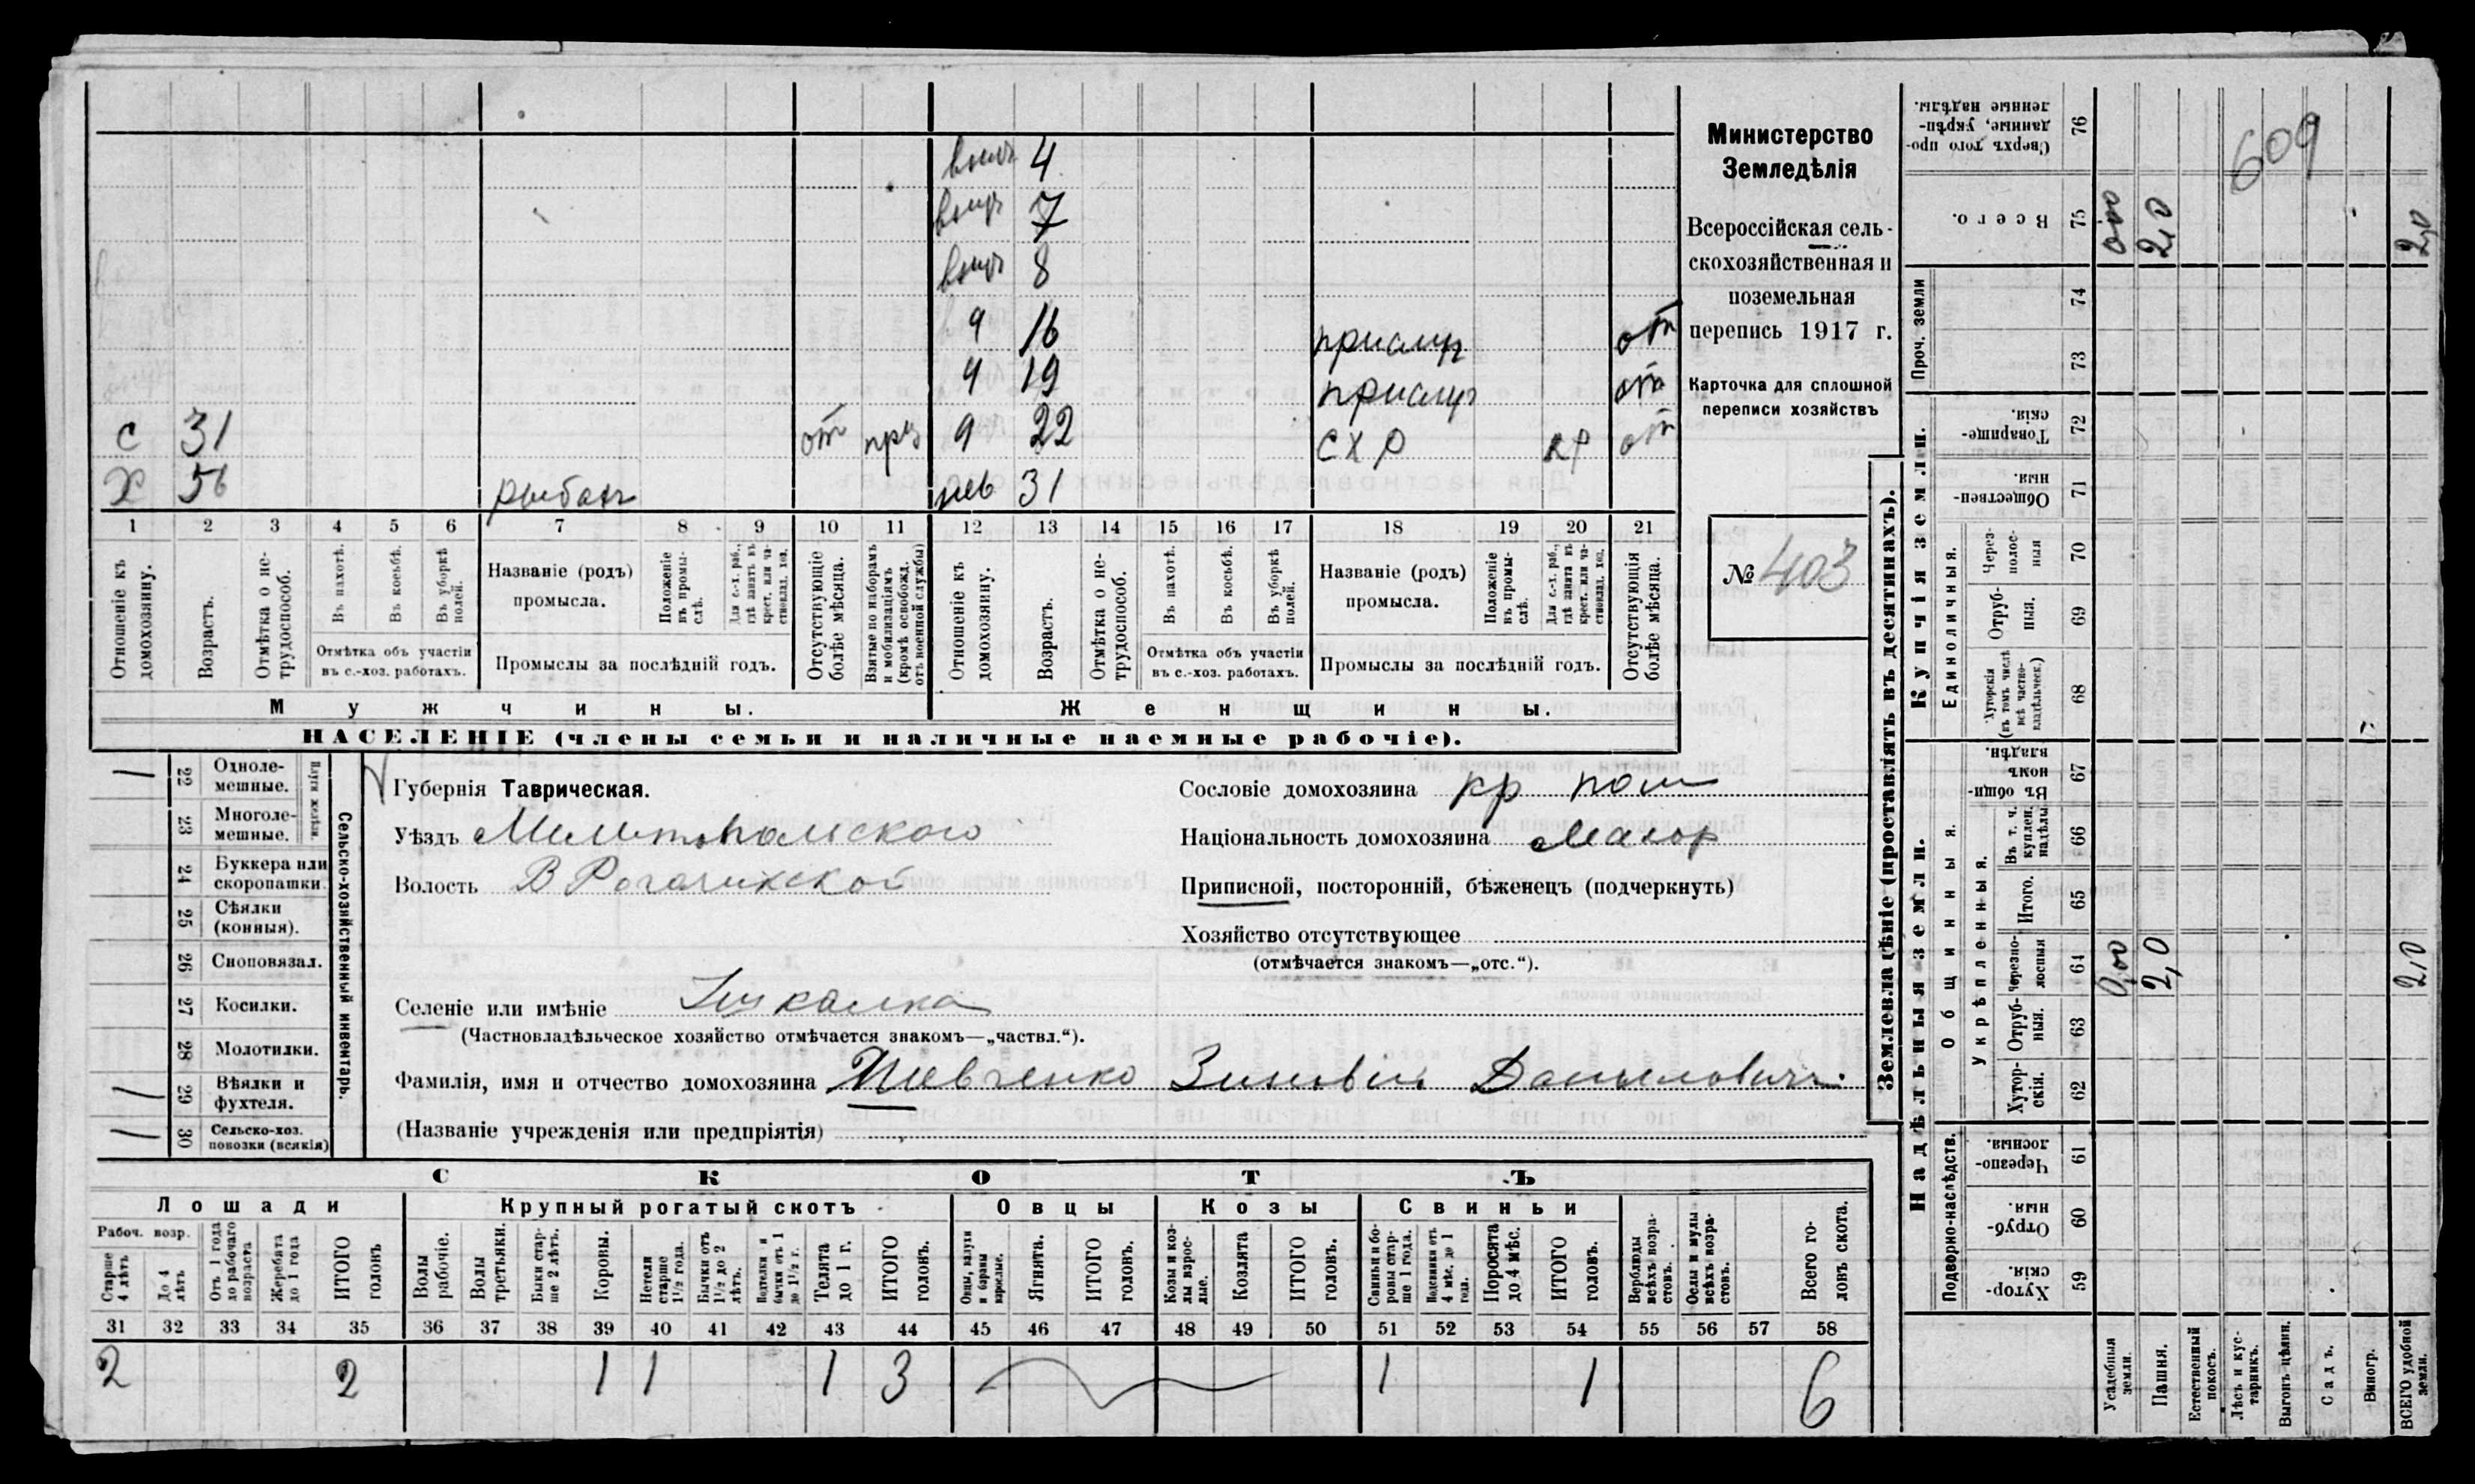 609
Министерство
Земледѣлія
Всероссійская сель-
скохозяйственная и
поземельная
перепись 1917 г.
Карточка для сплошной
переписи хозяйствъ
№ 403
4
7
8
16
ч 19
ч 22 СХР кр от
С 31 от
Х 56 31
1 2 3 4 5 6 7 8 9 10 11 12 13 14 15 16 17 18 19 20 21
Отношеніе къ домохозяину.
Возрастъ.
Отмѣтка о не-трудоспособ.
Въ пахотѣ.
Въ косьбѣ.
Въ уборкѣ полей.
Отмѣтка объ участіи въ с.-хоз. работахъ.
Названіе (родъ) промысла.
Положеніе въ промы-слѣ.
Для с.-х. раб., гдѣ занятъ въ крест. или ча-стновлад. хоз.
Промыслы за послѣдній годъ.
Отсутствующіе болѣе мѣсяца.
Взятые по наборамъ и мобилизаціямъ (кромѣ освобожд. отъ военной службы)
Отношеніе къ домохозяину.
Возрастъ.
Отмѣтка о не-трудоспособ.
Въ пахотѣ.
Въ косьбѣ.
Въ уборкѣ полей.
Отмѣтка объ участіи въ с.-хоз. работахъ.
Названіе (родъ) промысла.
Положеніе въ промы-слѣ.
Для с.-х. раб., гдѣ занята въ крест. или ча-стновлад. хоз.
Промыслы за послѣдній годъ.
Отсутствующія болѣе мѣсяца.
Мужчины. Женщины.
НАСЕЛЕНІЕ (члены семьи и наличные наемные рабочіе).
Сельско-хозяйственный инвентарь.
22 Одноле-мешные.
23 Многоле-мешные.
24 Буккера или скоропашки.
25 Сѣялки (конныя).
26 Сноповязал.
27 Косилки.
28 Молотилки.
1 29 Вѣялки и фухтеля.
1 30 Сельско-хоз. повозки (всякія)
Губернія Таврическая.
Уѣздъ Мелитопольского
Волость В Рогачикской
Селеніе или имѣніе
(Частновладѣльческое хозяйство отмѣчается знакомъ—„частвл.“).
Фамилія, имя и отчество домохозяина Шевченко Зиновій Даниловичъ
(Названіе учрежденія или предпріятія)
Сословіе домохозяина кр
Національность домохозяина Малор
Приписной, посторонній, бѣженецъ (подчеркнуть)
Хозяйство отсутствующее
(отмѣчается знакомъ—„отс.“).
СКОТЪ
Лошади Крупный рогатый скотъ Овцы Козы Свиньи
Рабоч. возр.
Старше 4 лѣтъ
До 4 лѣтъ
Отъ 1 года до рабочаго возраста
Жеребята до 1 года
ИТОГО головъ
Волы рабочіе.
Волы третьяки.
Быки стар-ше 2 лѣтъ.
Коровы.
Нетели старше 1½ года.
Бычки отъ 1½ до 2 лѣтъ.
Телята до 1 г.
ИТОГО головъ.
Ягнята.
ИТОГО головъ.
Козы и коз-лы взрос-лые.
Козлята
ИТОГО головъ.
Свиньи и бо-ровы стар-ше 1 года.
Поросята до 4 мѣс.
ИТОГО головъ.
Верблюды всѣхъ возра-стовъ.
Ослы и мулы всѣхъ возра-стовъ.
Всего го-ловъ скота.
31 32 33 34 35 36 37 38 39 40 41 42 43 44 45 46 47 48 49 50 51 52 53 54 55 56 57 58
2 2 1 1 1 3 1 1 6
Землевладѣніе (проставлять въ десятинахъ).
Надѣльныя земли.
Подворно-наслѣдств.
Хутор-скія. 59
Отруб-ныя. 60
Черезпо-лосныя. 61
Общинныя.
Укрѣпленныя.
Хутор-скія. 62
Отруб-ныя. 63
Черезпо-лосныя 64
Итого. 65
Въ т. ч. куплен. надѣлы 66
Въ общи-номъ владѣн. 67
Купчія земли.
Единоличныя.
Хуторскія (въ томъ числѣ всѣ частно-владѣльческ.) 68
Отруб-ныя. 69
Через-полос-ныя 70
Обществен-ныя. 71
Товарище-скія. 72
Проч. земли
73 74
Всего. 75
Сверхъ того про-данные, укрѣп-ленные надѣлы. 76
Усадебныя земли.
Пашня. 2,0 2,0
Естественный покосъ.
Лѣсъ и кус-тарникъ.
Выгонъ цѣлин.
Садъ.
Виногр.
ВСЕГО удобной земли. 2,0 2,0